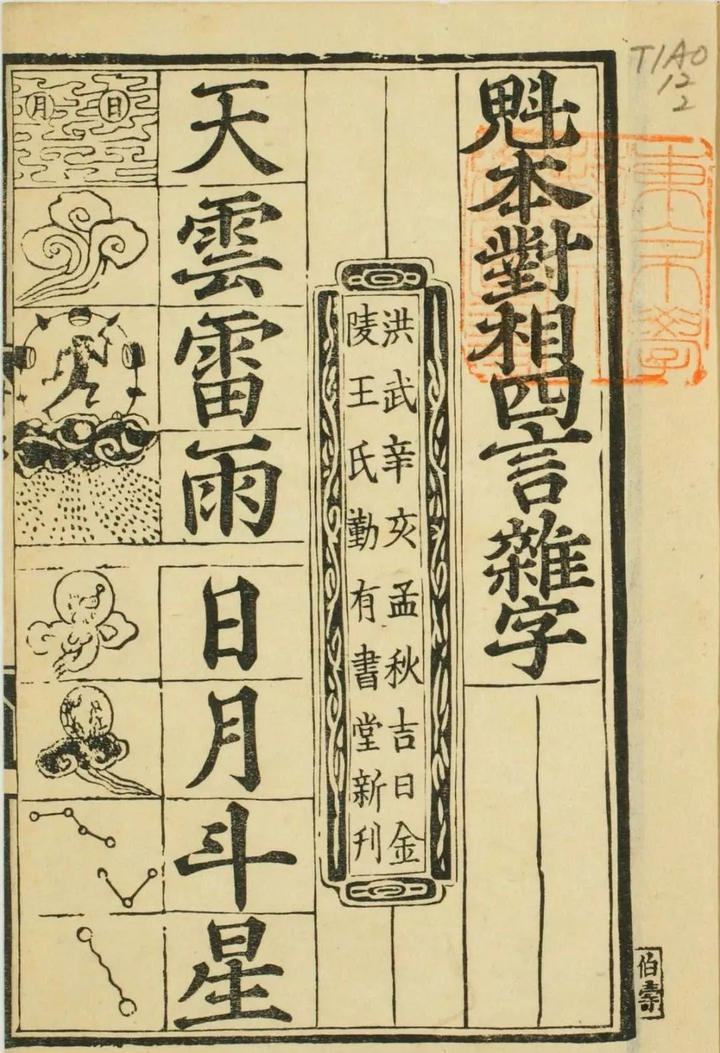 魁本對相四言雜字
洪武辛亥孟秋吉日金
陵王氏勤有書堂新刊
天雲雷雨
日月斗星
日
月
TIAO
12
2
伯壽